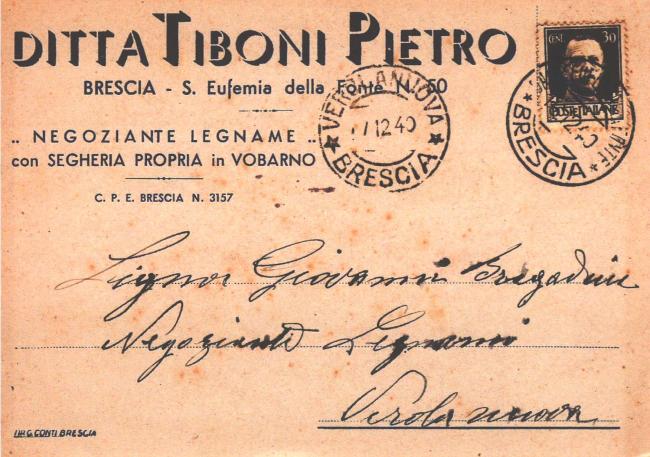 DITTA TIBONI PIETRO
BRESCIA - S. Eufemia della Fonte N. 60
„ NEGOZIANTE LEGNAME „
con SEGHERIA PROPRIA in VOBARNO
C. P. E. BRESCIA N. 3157
CENT. 30
POSTE ITALIANE
VEROLANUOVA
12 40
BRESCIA
BRESCIA
Signor Giovanni Bragadini
Negoziante Legnami
Verolanuova
CONTI BRESCIA